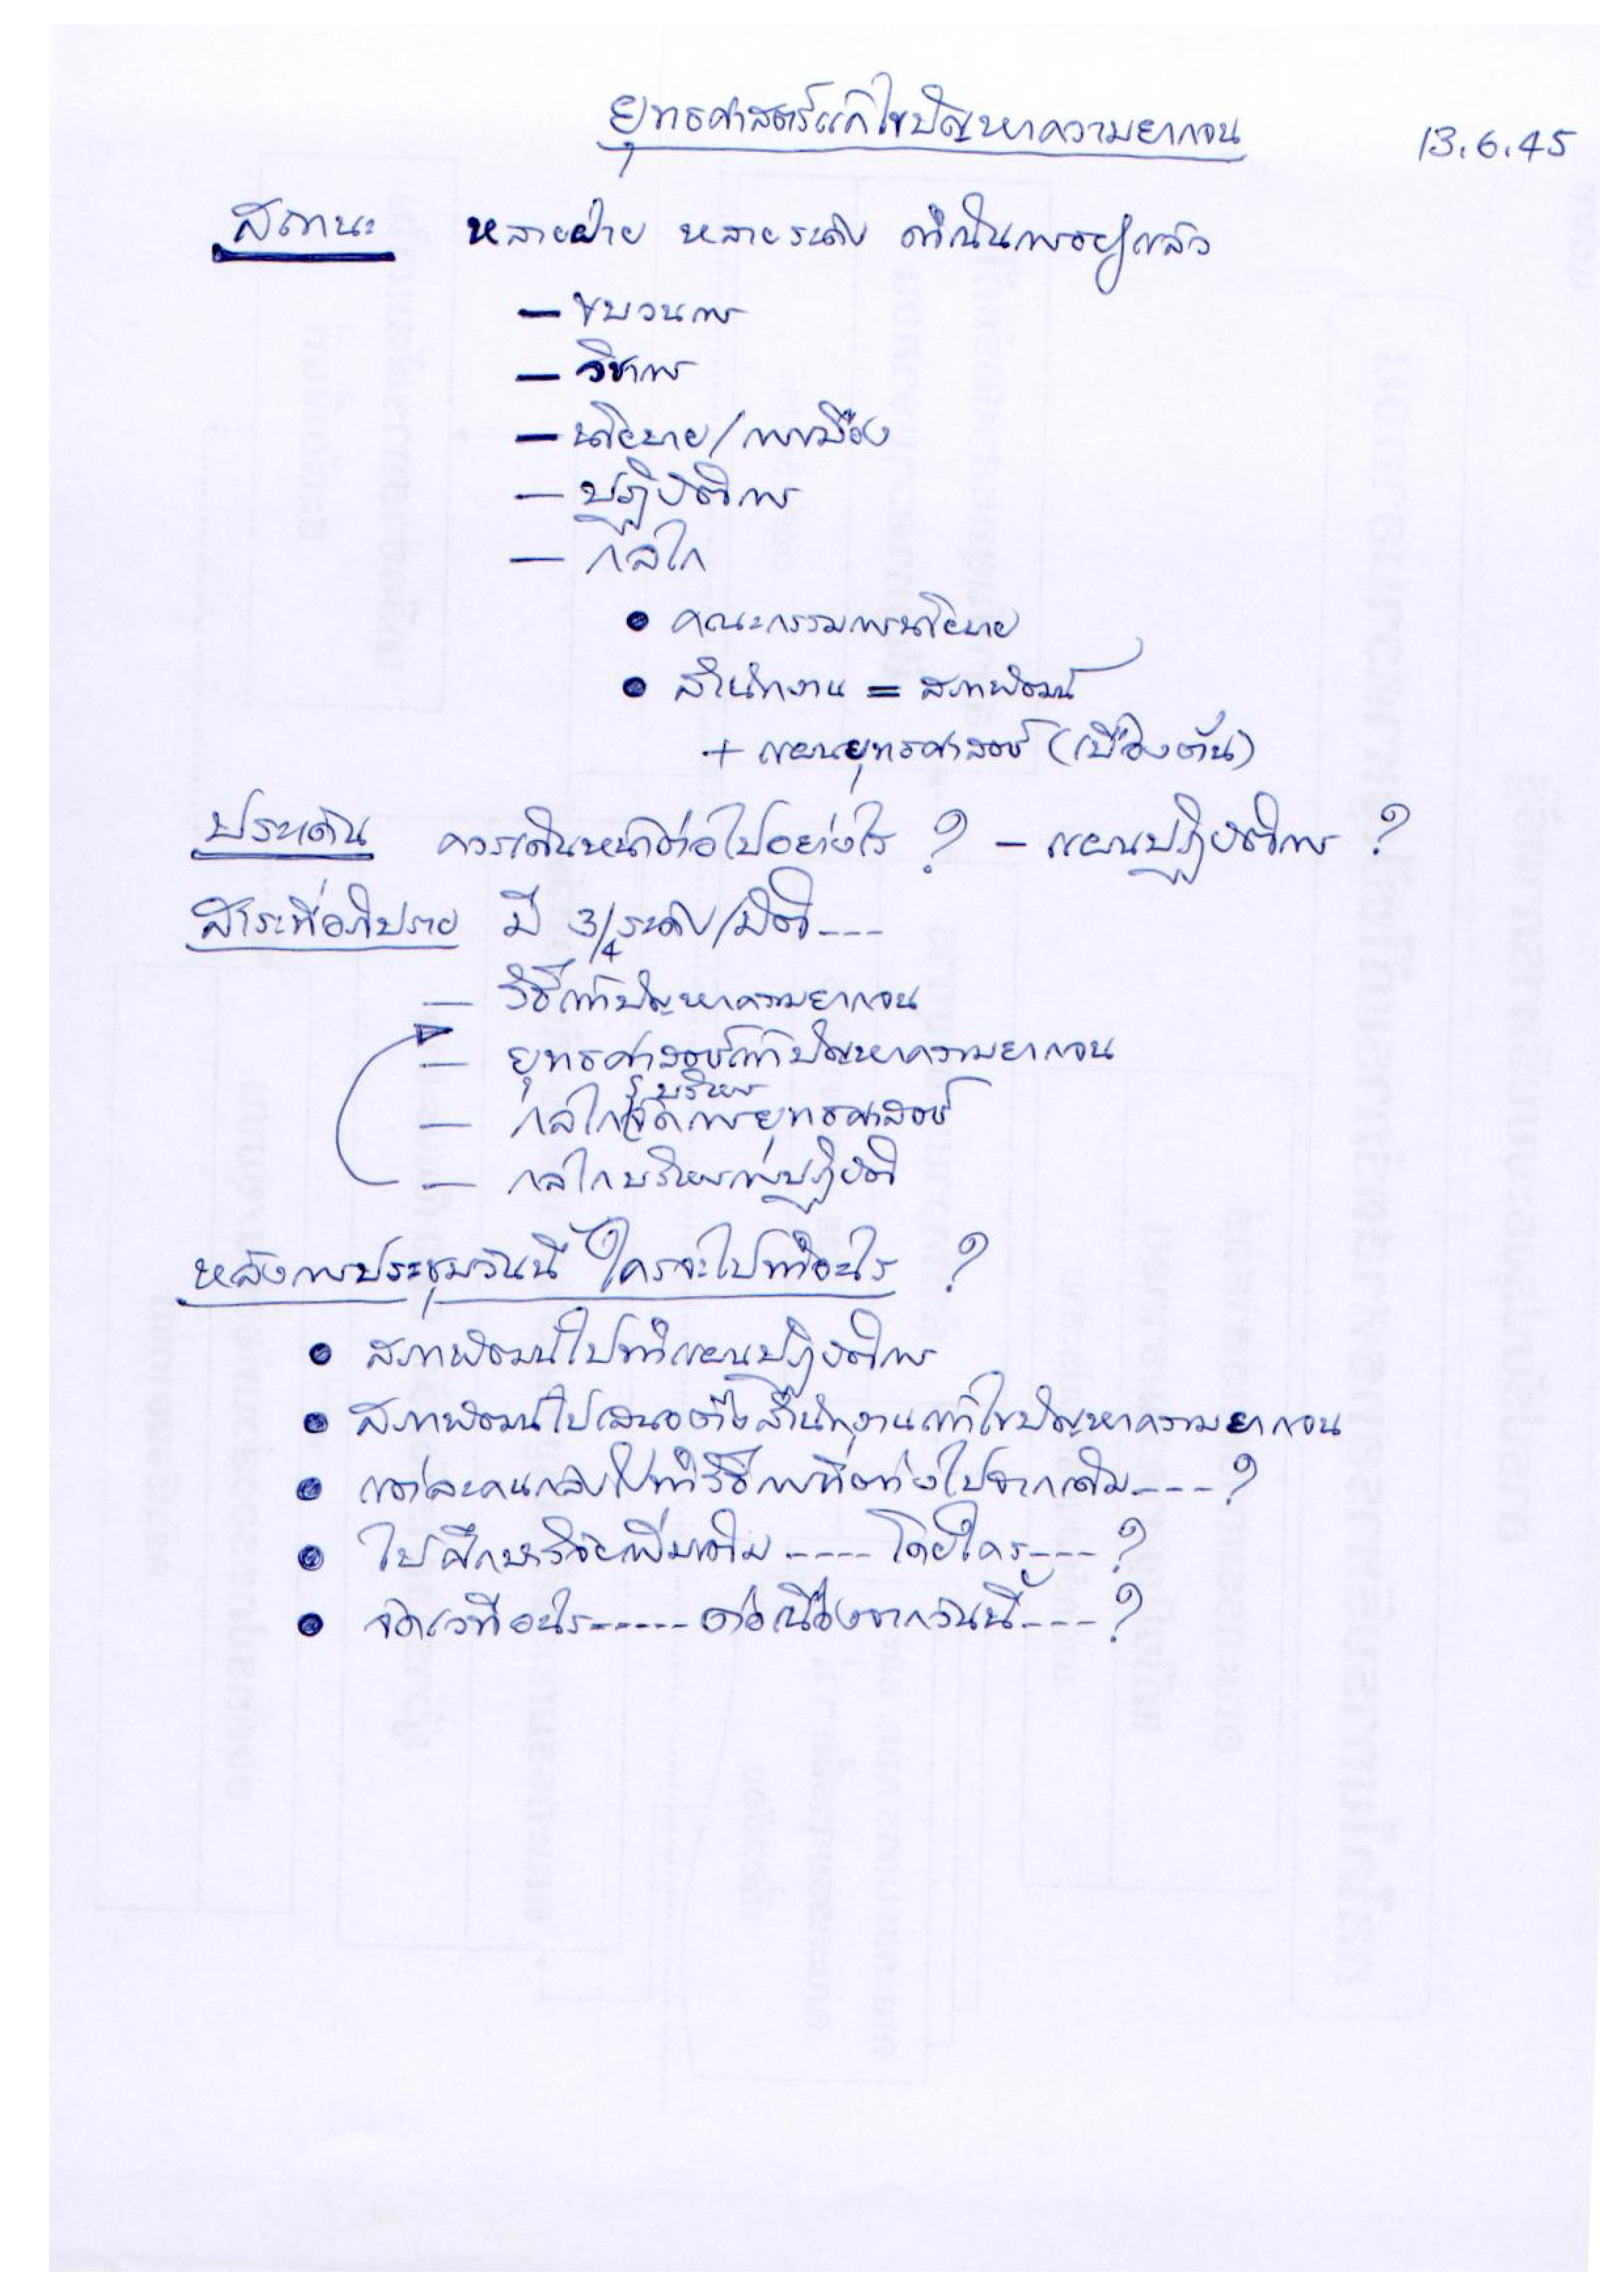 ยุทธศาสตร์แก้ไขปัญหาความยากจน 13.6.45
สถานะ หลายฝ่าย หลายระดับ ดำเนินการอยู่แล้ว
— ขบวนการ
— วิชาการ
— นโยบาย/การเมือง
— ปฏิบัติการ
— กลไก
● คณะกรรมการนโยบาย
● สำนักงาน = สภาพัฒน์
+ แผนยุทธศาสตร์ (เบื้องต้น)
ประเด็น ควรเดินหน้าต่อไปอย่างไร ? – แผนปฏิบัติการ ?
สาระที่อภิปราย มี 3/4 ระดับ/มิติ ---
— วิธีแก้ปัญหาความยากจน
— ยุทธศาสตร์แก้ปัญหาความยากจน
บริหาร
— กลไกจัดการยุทธศาสตร์
— กลไกบริหารการปฏิบัติ
หลังการประชุมวันนี้ ใครจะไปทำอะไร ?
● สภาพัฒน์ไปทำแผนปฏิบัติการ
● สภาพัฒน์ไปเสนอตั้งสำนักงานแก้ไขปัญหาความยากจน
● แต่ละคนกลับไปทำวิธีการที่ต่างไปจากเดิม ---- ?
● ไปศึกษาวิจัยเพิ่มเติม ----- โดยใคร ---- ?
● จัดเวทีอะไร ------ ต่อเนื่องจากวันนี้ ---- ?